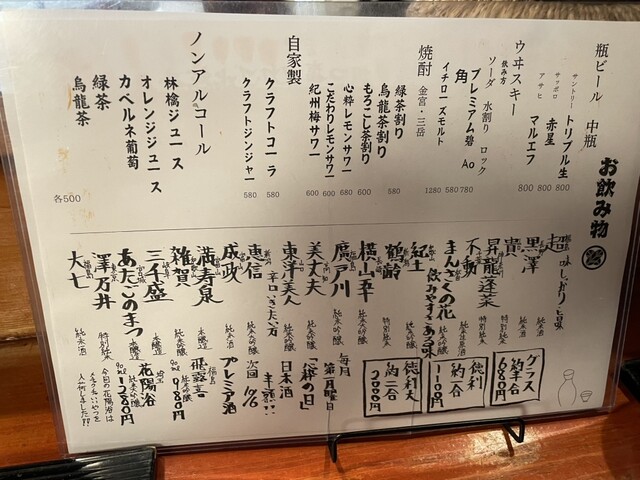 お飲み物
瓶ビール 中瓶
サントリー トリプル生 800
サッポロ 赤星 800
アサヒ マルエフ 800
ウヰスキー
飲み方
ソーダ 水割り ロック
プレミアム碧Ao 780
角 580
イチローズモルト 1280
焼酎
金宮・三岳
緑茶割り 580
烏龍茶割り
もろこし茶割り 600
心粋レモンサワー 680
こだわりレモンサワー 600
紀州梅サワー 600
自家製
クラフトコーラ 580
クラフトジンジャー 580
ノンアルコール
林檎ジュース
オレンジジュース
カベルネ葡萄
緑茶
烏龍茶
各500
超 味しっかり 旨味 純米酒
黒澤 純米
貴 特別純米
昇龍蓬莱
不動
まんさくの花 飲みやすくある味
紀土 純米吟醸
鶴齢 特別純米
横山五
廣戸川
美丈夫 純米吟醸
東洋美人 純米吟醸
恵信 辛口いきたい方
成政 純米酒
満寿泉 本醸造
雑賀 純米吟醸
三千盛
あたごのまつ 本醸造
澤乃井 特別純米
大七 純米酒
グラス
約半合
680円
徳利
約一合
1100円
徳利大
約二合
2000円
毎月
第一月曜日
「裸の日」
日本酒
半額!!
次回 1/6
プレミア酒
飛露喜
980円
花陽浴
純米吟醸
90ml 1280円
今日の花陽浴は
入荷しました!!